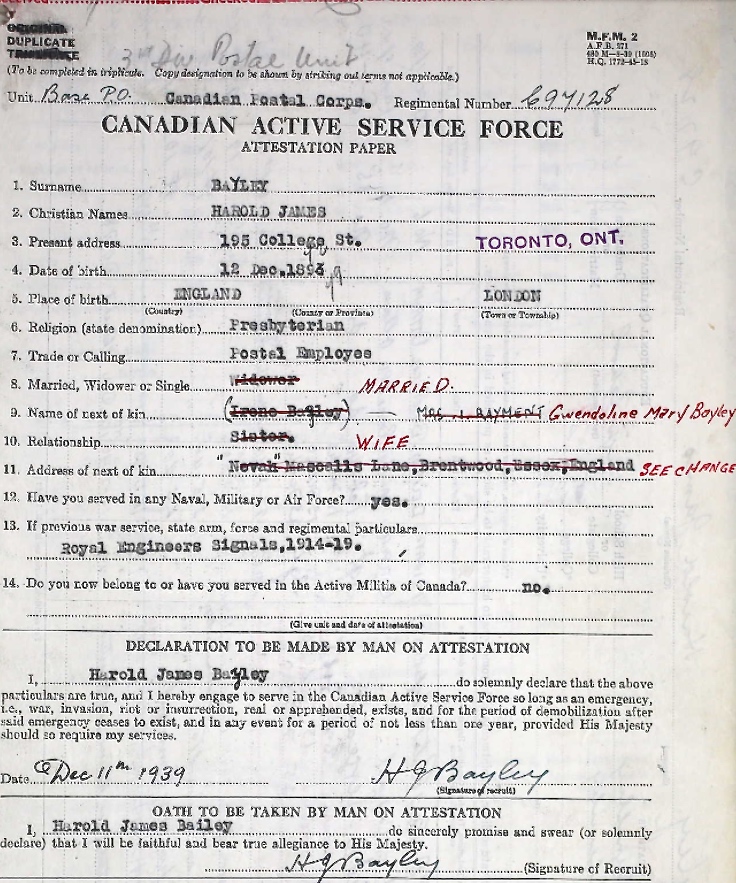 ORIGINAL
DUPLICATE
3rd Div Postal Unit
M.F.M. 2
A.F.B. 271
H.Q. 1772-45-18
(To be completed in triplicate. Copy designation to be shown by striking out terms not applicable.)
Unit Base P.O. Canadian Postal Corps. Regimental Number C97128
CANADIAN ACTIVE SERVICE FORCE
ATTESTATION PAPER
1. Surname BAYLEY
2. Christian Names HAROLD JAMES
3. Present address 195 College St. TORONTO, ONT.
4. Date of birth 12 Dec.1893
5. Place of birth ENGLAND LONDON
(Country) (County or Province) (Town or Township)
6. Religion (state denomination) Presbyterian
7. Trade or Calling Postal Employee
8. Married, Widower or Single Widower MARRIED.
9. Name of next of kin (Irene Bayley) — MRS. J. RAYMENT Gwendoline Mary Bayley
10. Relationship Sister. WIFE
11. Address of next of kin "Novah" Mascalls Lane, Brentwood, Essex, England SEE CHANGE
12. Have you served in any Naval, Military or Air Force? yes.
13. If previous war service, state arm, force and regimental particulars
Royal Engineers Signals,1914-19.
14. Do you now belong to or have you served in the Active Militia of Canada? no.
(Give unit and date of attestation)
DECLARATION TO BE MADE BY MAN ON ATTESTATION
I, Harold James Bayley do solemnly declare that the above
particulars are true, and I hereby engage to serve in the Canadian Active Service Force so long as an emergency,
i.e., war, invasion, riot or insurrection, real or apprehended, exists, and for the period of demobilization after
said emergency ceases to exist, and in any event for a period of not less than one year, provided His Majesty
should so require my services.
Date Dec 11th 1939 H J Bayley
(Signature of recruit)
OATH TO BE TAKEN BY MAN ON ATTESTATION
I, Harold James Bailey do sincerely promise and swear (or solemnly
declare) that I will be faithful and bear true allegiance to His Majesty.
H J Bayley (Signature of Recruit)